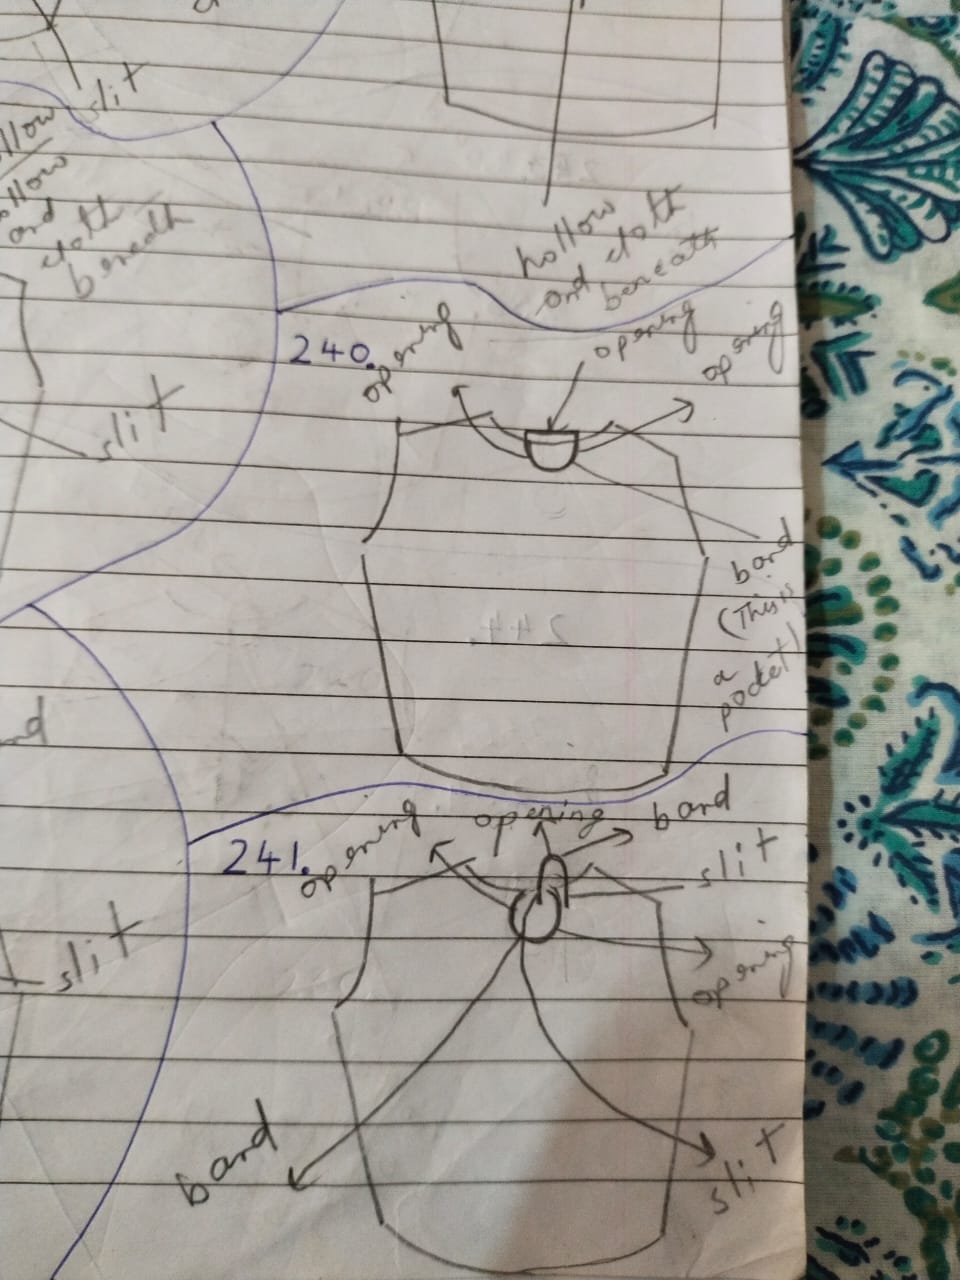 slit
hollow
and
cloth
beneath
hollow
and cloth
beneath
slit
240.
opening
opening
opening
band
(This is
a
pocket)
241.
opening
opening
band
slit
opening
slit
band
slit